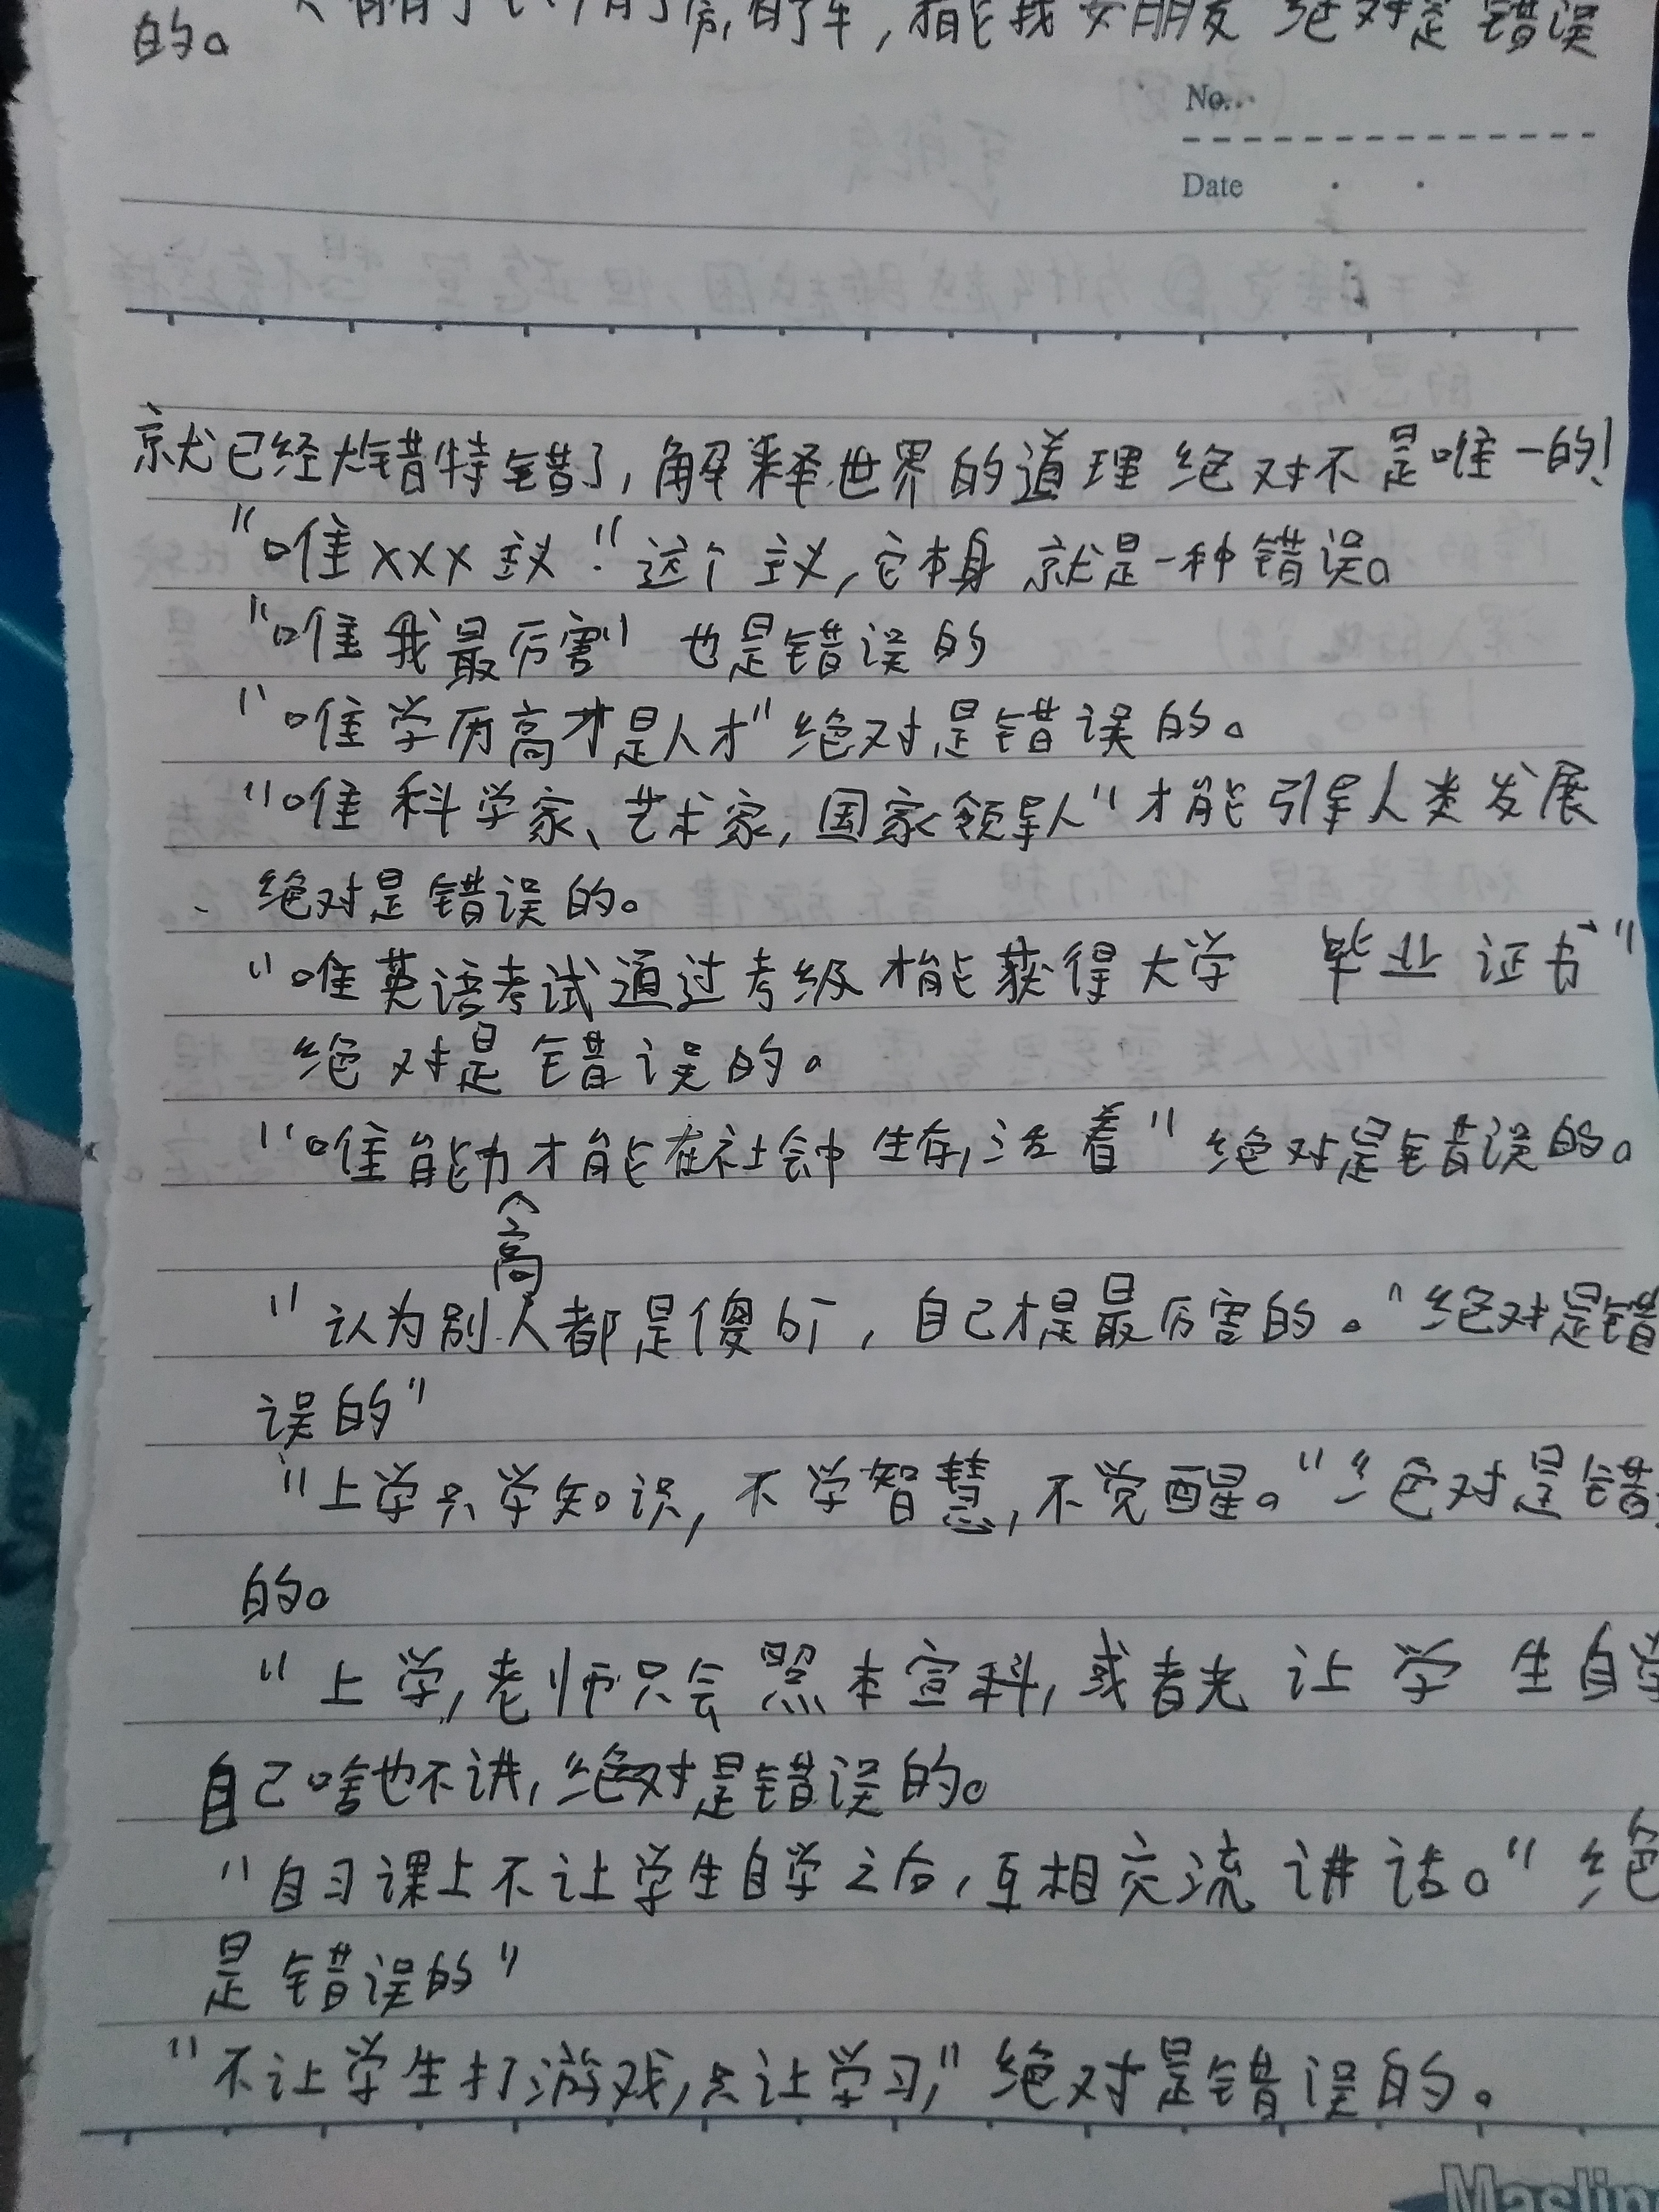 有了房,有了车,才能找女朋友 绝对是错误
的。
No.
Date
就已经大错特错了,解释世界的道理绝对不是唯一的!
“唯XXX主义”这个主义,它本身就是一种错误。
“唯我最厉害”也是错误的
“唯学历高才是人才”绝对是错误的。
“唯科学家、艺术家,国家领导人”才能引导人类发展
、绝对是错误的。
“唯英语考试通过考级才能获得大学 毕业证书”
绝对是错误的。
“唯能力才能在社会中生存,活着”绝对是错误的。
高
“认为别人都是傻bī,自己才是最厉害的。”绝对是错
误的”
“上学只学知识,不学智慧,不觉醒。”绝对是错
的。
“上学,老师只会照本宣科,或者光让学生自学
自己啥也不讲,绝对是错误的。
“自习课上不让学生自学之后,互相交流讲话。”绝
是错误的”
“不让学生打游戏,只让学习,”绝对是错误的。